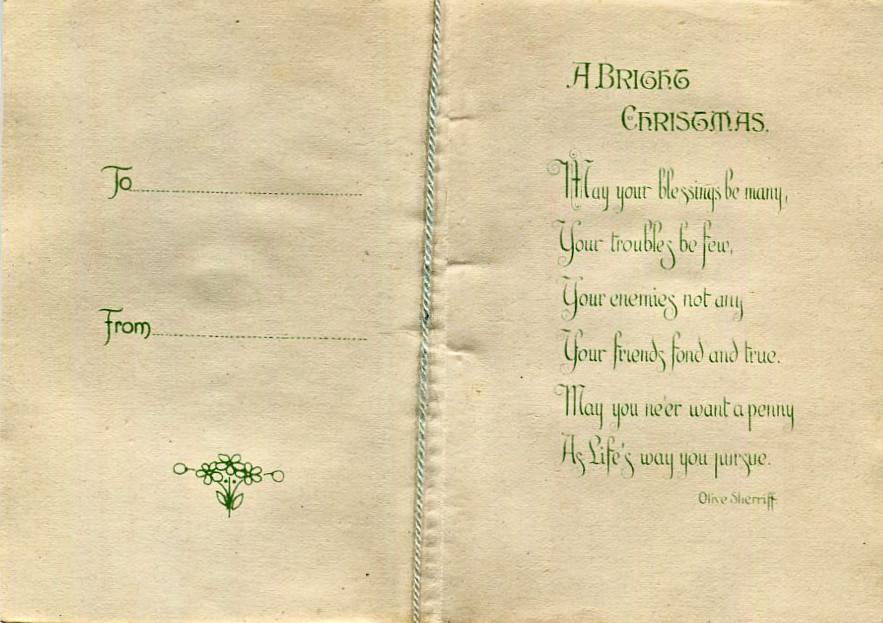 To
From
A BRIGHT
CHRISTMAS.
May your blessings be many,
Your troubles be few,
Your enemies not any
Your friends fond and true.
May you ne'er want a penny
As Life's way you pursue.
Olive Sherriff